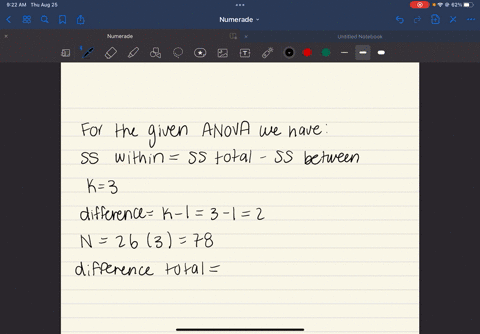 9:22 AM Thu Aug 25
62%
Numerade
Numerade
Untitled Notebook
For the given ANOVA we have:
SS within = SS total - SS between
K=3
difference= K-1 = 3-1=2
N = 26 (3) = 78
difference total=